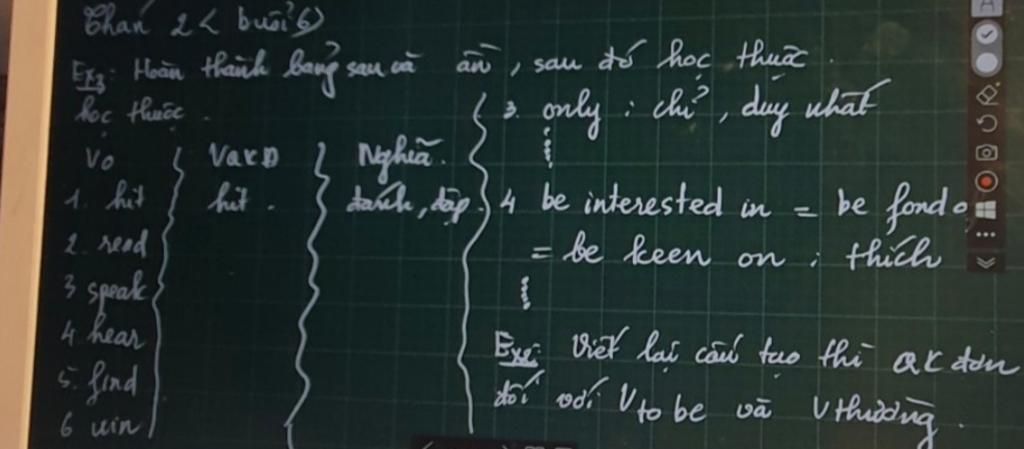 Phần 2 < buổi 6>
Ex3: Hoàn thành bảng sau và ôn, sau đó học thuộc.
học thuộc.
Vo VQKĐ Nghĩa.
1. hit hit. đánh, đập.
2. read
3 speak
4 hear
5. find
6 win
3. only : chỉ, duy nhất
4 be interested in = be fond o
= be keen on : thích
Ex2: Viết lại cấu tạo thì QK đơn
đối với V to be và V thường.